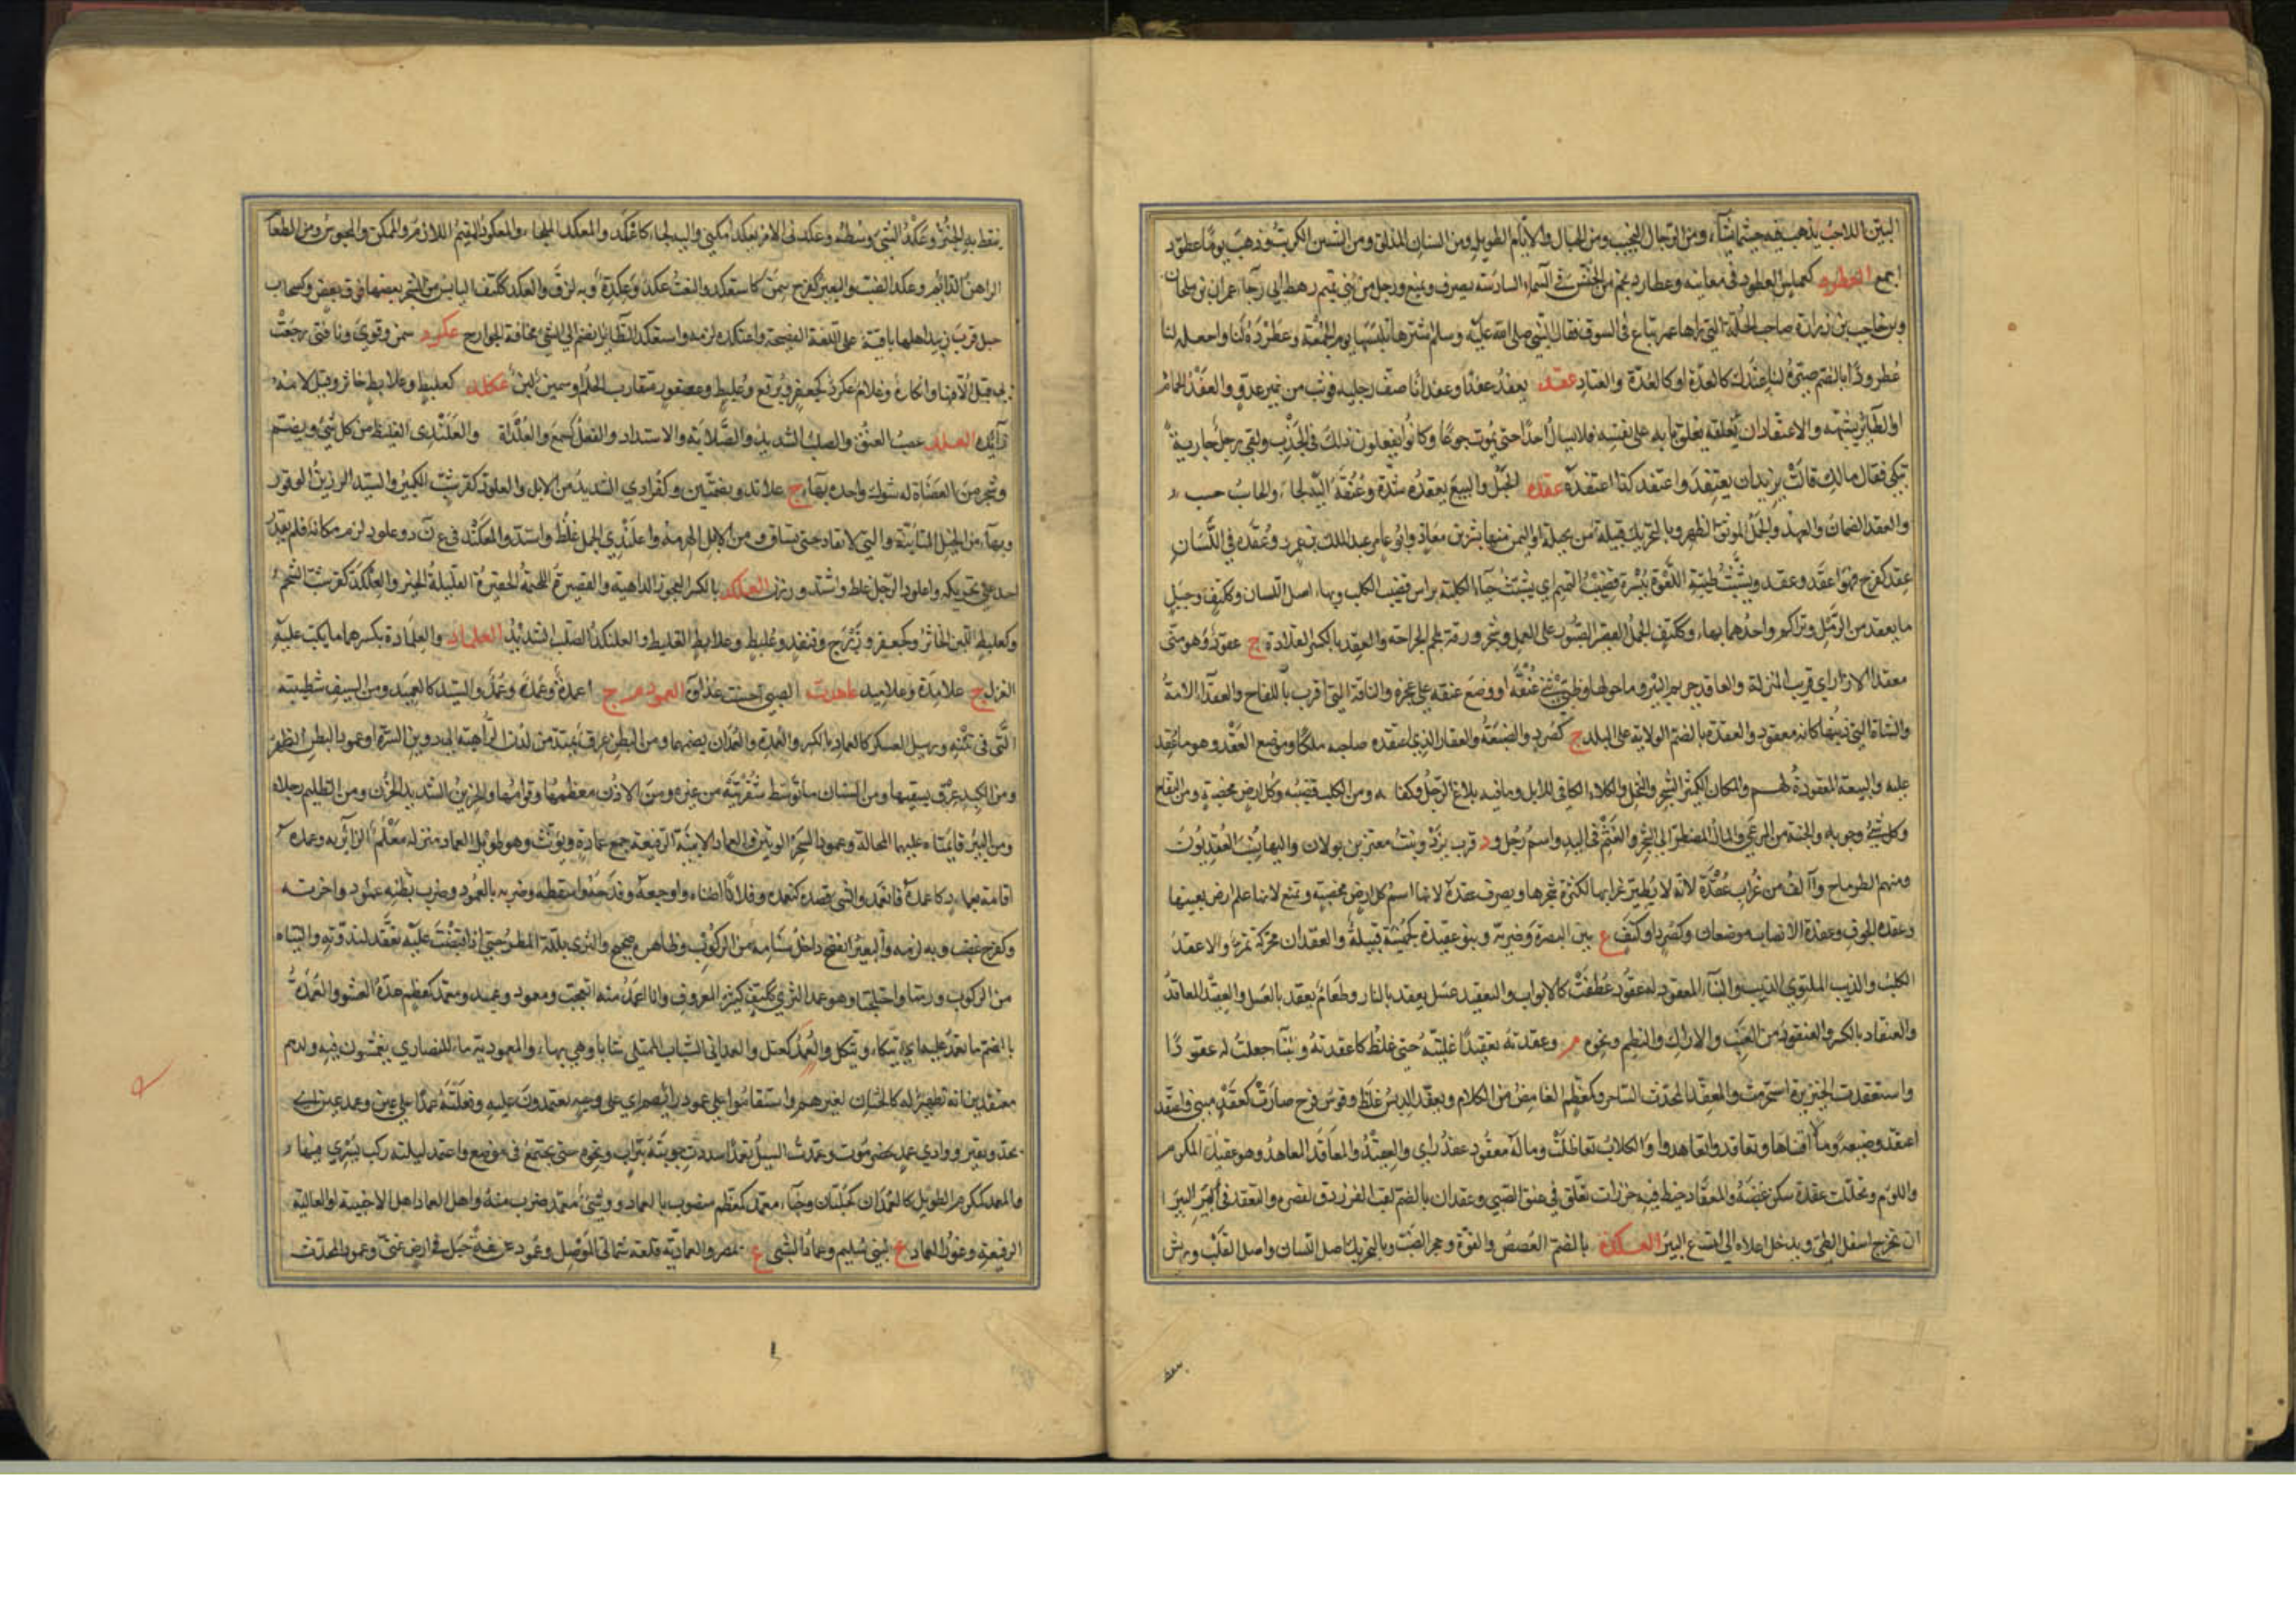 البيّن اللاحب يذهب فيه حيثما شاء ومن الرجال النجيب ومن الجبال والايام الطويل ومن السنان المذلق ومن السنين الكريت وذهب يوما عطود
اجمع العطرد كعملس العطود في معانيه وعطارد نجم من الخنس في السماء السادسة يصرف ويمنع ورجل من بني تميم رهط ابي رجاء عمران بن ملحان
وبن حاجب بن زرارة صاحب الحلة التي راها عمر تباع في السوق فقال للنبي صلى الله عليه وسلم اشترها تلبسها يوم الجمعة وعطرده لنا واجعله لنا
عطرودا بالضم صيّره لنا عندك كالعدة او كالعدة والعتاد عفد يعفد عفدا وعفدانا صف رجليه فوثب من غير عدو والعفد الحمام
او الطائر يشبهه والاعتفاد ان يغلق بابه على نفسه فلا يسال احدا حتى يموت جوعا وكانوا يفعلون ذلك في الجدب ولقي رجل جارية
تبكي فقال مالك قالت نريد ان نعتفد واعتفد كذا اعتقده عقد الحبل والبيع يعقده شدّه وعنقه اليه لجا والحاسب حسب
والعقد الضمان والعهد والجمل الموثق الظهر وبالتحريك قبيلة من بجيلة او اليمن منها بشر بن معاذ وابو عامر عبد الملك بن عمرو وعقدة في اللسان
عقد كفرح فهو اعقد وعقد وتشبث ظبية اللعوة ببسرة قضيب التمثم اي تشبث حياء الكلبة براس قضيب الكلب وبهاء اصل اللسان وككتف وجبل
ما تعقد من الرمل وتراكم واحدهما بهاء وككتف الجمل القصير الصبور على العمل وشجر ورقه يلحم الجراحة والعقد بالكسر القلادة ج عقود وهو مني
معقد الازار اي قريب المنزلة والعاقد حريم البئر وما حولها وظبي ثنى عنقه او وضع عنقه على عجزه والناقة التي اقرت باللقاح والعقداء الامة
والشاة التي ذنبها كانه معقود والعقدة بالضم الولاية على البلد ج كصرد والضيعة والعقار الذي اعتقده صاحبه ملكا وموضع العقد وهو ما عقد
عليه والبيعة المعقودة لهم والمكان الكثير الشجر والنخل والكلا الكافي للابل وما فيه بلاغ الرجل وكفايته ومن الكلب قضيبه وكل ارض مخصبة ومن النكاح
وكل شيء وجوبه والجنبة من المرعى والمال المضطر الى الشجر والعثم في اليد واسم رجل ود قرب يزد وبنت معتر بن بولان واليها ينسب العقديون
ومنهم الطرماح وآلف من غراب عقدة لانه لا يطير غرابها لكثرة شجرها ويصرف عقدة لانها اسم كل ارض مخصبة وتمنع لانها علم ارض بعينها
وعقدة الجوف وعقدة الانصاب موضعان وكصرد او كتف ع بين البصرة وضرية وبنو عقيدة كجهينة قبيلة والعقدان محركة تمر والاعقد
الكلب والذيب الملتوي الذنب والبناء المعقود له عقود عطفت كالابواب واليعقيد عسل يعقد بالنار وطعام يعقد بالعسل والعقيد المعاقد
والعنقاد بالكسر والعنقود من العنب والاراك والبطم ونحوه م وعقدته تعقيدا غليته حتى غلظ كاعقدته والبناء جعلت له عقودا
واستعقدت الخنزيرة استحرمت والمعقد كمحدث الساحر وكمعظم الغامض من الكلام وتعقد الدبس غلظ وقوس قزح صارت كعقد مبني واعتقد
اعتقد ضيعة ومالا اقتناها وتعاقدوا تعاهدوا والكلاب تعاظلت وماله معقود عقد راي والعقيد والمعاقد المعاهد وهو عقيد الكرم
واللؤم وتحللت عقده سكن غضبه والمعقاد خيط فيه خرزات تعلق في عنق الصبي وعقدان بالضم لقب الفرزدق لقصره والتعقد في البئر
ان تخرج اسفل الطي ويدخل اعلاه الى اتساع البئر العكدة بالضم العصعص والقوة وحجر الضب وبالتحريك اصل اللسان واصل القلب وريش
ينقط به الخبز وعكد الشيء وسطه وعكدني الامر يعكد امكنني واليه لجا كاعكد والمعكد الملجا والمعكود المقيم اللازم والممكن والمحبوس ومن الطعام
الراهن الدائم وعكد الضب والبعير كفرح سمن كاستعكد والنعت عكد وعكدة وبه لزق والعكد ككتف اليابس من الشجر بعضها فوق بعض وكسحاب
جبل قرب زبيد اهلها باقية على اللغة الفصيحة واعتكده لزمه واستعكد الطائر انضم الى الشيء مخافة الجوارح عكرد سمن وقوي وناقتي رجعت
بي قبل الافها وانكاره وغلام عكرد كجعفر وبرقع وعلبط وعصفور متقارب الحلم او سمين لبن عكلد كعلبط وعلابط خاثر وقيل لامه
زائدة العلد عصب العنق والصلب الشديد والصلابة والاشتداد والفعل كسمع والعلداة والعلندى الغليظ من كل شيء ويضم
وشجر من العضاه له شوك واحده بهاء ج علاند وبضمتين وكفرادي الشديد من الابل والعلود كقرشب الكبير والسيد الرزين الوقور
وبهاء من الخيل المتابية والتي لا تقاد حتى تساق ومن الابل الهرمة واعلندى الجمل غلظ واشتد والمعلند في ع ن د وعلود لزم مكانه فلم يقدر
احد على تحريكه واعلود الرجل غلظ واشتد ورزن العلكد بالكسر العجوز الداهية والقصيرة اللحيمة الحقيرة القليلة الخير والعلكد كقرشب الضخم
وكعلبط اللبن الخاثر وكجعفر وزبرج وقنفذ وعلبط وعلابط الغليظ والعلنكد الصلب الشديد العلماد والعلمادة بكسرهما ما يكب عليه
الغزل ج علامدة وعلاميد علهدت الصبي احسنت غذاءه العمود م ج اعمدة وعمد وعمد والسيد كالعميد ومن السيف شطيبته
التي في متنه ورسيل العسكر كالعماد بالكسر والعمدة والعمدان بضمهما ومن البطن عرق يمتد من لدن الرهابة الى دوين السرة او عمود البطن الظهر
ومن الكبد عرق يسقيها ومن السنان ما توسط شفرتيه من غيره ومن الاذن معظمها وقوامها والحزين الشديد الحزن ومن الظليم رجلاه
ومن البئر قايمتاه عليهما المحالة وعمود السحر الوتين والعماد الابنية الرفيعة جمع عمادة ويؤنث وهو طويل العماد منزله معلم لزائريه وعمده
اقامه بعماد كاعمده فانعمد والشيء قصده كتعمده وفلانا اضناه واوجعه وفدحه واسقطه وضربه بالعمود وضرب بطنه عمود واحزنه
وكفرح غضب وبه لزمه والبعير انفضخ داخل سنامه من الركوب وظاهره صحيح والثرى بلله المطر حتى اذا قبضت عليه تعقد لندوته والبتاه
من الركوب ورمتا واختلجتا وهو عمد الثرى ككتف كثير المعروف وانا اعمد منه اتعجب ومعود وعميد ومعمد كمعظم هدّه العشق والعمدة
بالضم ما يعتمد عليه اي يتكا ويتكل والعمد كعتل والعمداني الشاب الممتلي شبابا وهي بهاء والمعمودية ماء للنصاري يغمسون فيه ولدهم
معتقدين انه تطهير له كالختان لغيرهم واستقاموا على عمود رايهم اي على وجه يعتمدون عليه وفعلته عمدا على عين وعمد عين اي
بجد ويقين ووادي عمد بحضرموت وعمدت السيل تعميدا سددت جريته بتراب ونحوه حتى يجتمع في موضع واعتمد ليلته ركب يسري فيها
والمعمد كمكرم الطويل كالعمدان كجلبان وخباء معمد كمعظم منصوب بالعماد ووشي معمد ضرب منه واهل العماد اهل الاخبية او العالية
الرفيعة وعمود العماد ع لبني سليم وعماد الشبى ع بمصر والعمادية قلعة شمالي الموصل وعمود غريفة جبل في ارض غني وعمود المحدث